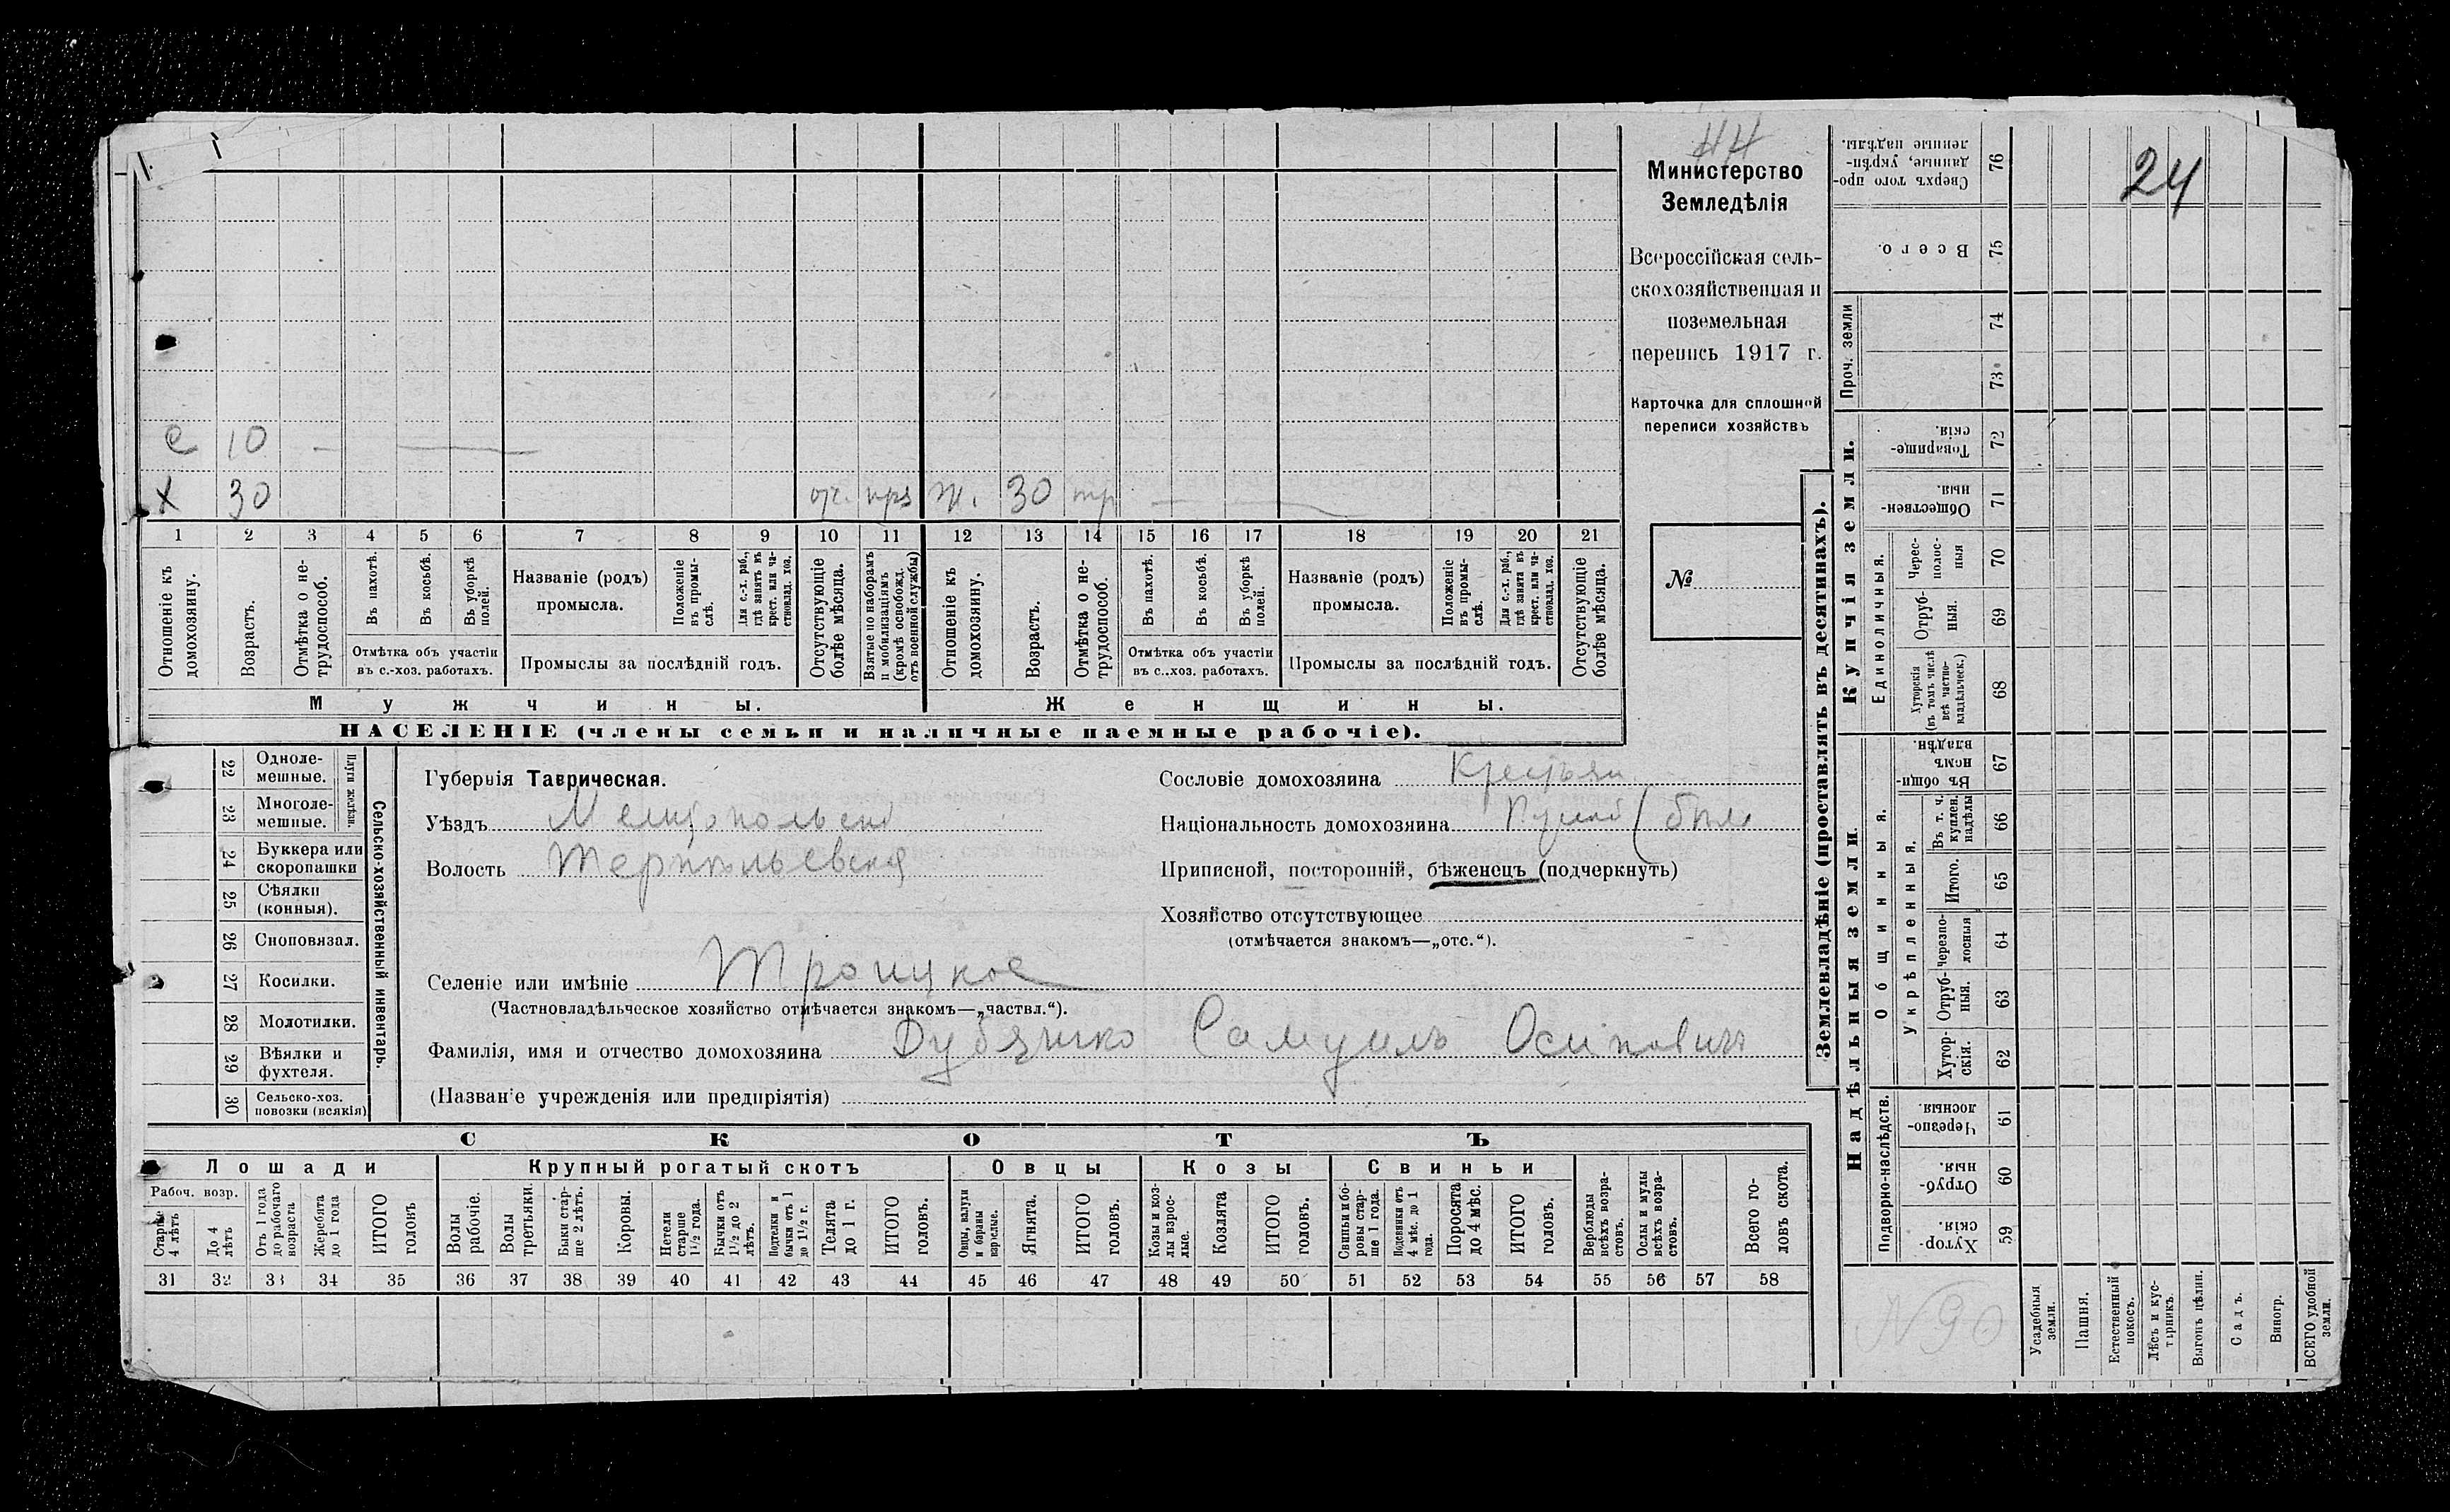 44
24
Министерство
Земледѣлія
Всероссійская сель-
скохозяйственная и
поземельная
перепись 1917 г.
Карточка для сплошной
переписи хозяйствъ
№
е 10
х 30 от. Ж. 30
1 2 3 4 5 6 7 8 9 10 11 12 13 14 15 16 17 18 19 20 21
Отношеніе къ домохозяину.
Возрастъ.
Отмѣтка о не-трудоспособ.
Въ пахотѣ.
Въ косьбѣ.
Въ уборкѣ полей.
Отмѣтка объ участіи
въ с.-хоз. работахъ.
Названіе (родъ)
промысла.
Положеніе въ промы-слѣ.
Для с.-х. раб., гдѣ занятъ въ крест. или ча-стновлад. хоз.
Промыслы за послѣдній годъ.
Отсутствующіе болѣе мѣсяца.
Взятые по наборамъ и мобилизаціямъ (кромѣ освобожд. отъ военной службы)
Отношеніе къ домохозяину.
Возрастъ.
Отмѣтка о не-трудоспособ.
Въ пахотѣ.
Въ косьбѣ.
Въ уборкѣ полей.
Отмѣтка объ участіи
въ с..хоз. работахъ.
Названіе (родъ)
промысла.
Положеніе въ промы-слѣ.
Для с.-х. раб., гдѣ занята въ крест. или ча-стновлад. хоз.
Промыслы за послѣдній годъ.
Отсутствующіе болѣе мѣсяца.
Мужчины. Женщины.
НАСЕЛЕНІЕ (члены семьи и наличные наемные рабочіе).
Сельско-хозяйственный инвентарь.
Плуги желѣзн.
22 Одноле-мешные.
23 Многоле-мешные.
24 Буккера или скоропашки
25 Сѣялки (конныя).
26 Сноповязал.
27 Косилки.
28 Молотилки.
29 Вѣялки и фухтеля.
30 Сельско-хоз. повозки (всякія)
Губернія Таврическая.
Уѣздъ Мелитопольскій
Волость
Селеніе или имѣніе Троицкое
(Частновладѣльческое хозяйство отмѣчается знакомъ—„частвл.“).
Фамилія, имя и отчество домохозяина Самуилъ Осиповичъ
(Названіе учрежденія или предпріятія)
Сословіе домохозяина Крестьян
Національность домохозяина
Приписной, посторонній, бѣженецъ (подчеркнуть)
Хозяйство отсутствующее
(отмѣчается знакомъ—„отс.“).
СКОТЪ
Лошади Крупный рогатый скотъ Овцы Козы Свиньи
Рабоч. возр.
Старше 4 лѣтъ
До 4 лѣтъ
Отъ 1 года до рабочаго возраста
Жеребята до 1 года
ИТОГО головъ
Волы рабочіе.
Волы третьяки.
Быки стар-ше 2 лѣтъ.
Коровы.
Нетели старше 1½ года.
Бычки отъ 1½ до 2 лѣтъ.
Подтелки и бычки отъ 1 до 1½ г.
Телята до 1 г.
ИТОГО головъ.
Овцы, валухи и бараны взрослые.
Ягнята.
ИТОГО головъ.
Козы и коз-лы взрос-лые.
Козлята
ИТОГО головъ.
Свиньи и бо-ровы стар-ше 1 года.
Подсвинки отъ 4 мѣс. до 1 года.
Поросята до 4 мѣс.
ИТОГО головъ.
Верблюды всѣхъ возра-стовъ.
Ослы и мулы всѣхъ возра-стовъ.
Всего го-ловъ скота.
31 32 33 34 35 36 37 38 39 40 41 42 43 44 45 46 47 48 49 50 51 52 53 54 55 56 57 58
Землевладѣніе (проставлять въ десятинахъ).
Надѣльныя земли.
Купчія земли.
Проч. земли
Подворно-наслѣдств.
Общинныя.
Укрѣпленныя.
Единоличныя.
Сверхъ того про-данные, укрѣп-ленные надѣлы. 76
Всего. 75
74
73
Товарище-скія. 72
Обществен-ныя. 71
Черес-полос-ныя 70
Отруб-ныя. 69
Хуторскія (въ томъ числѣ всѣ частно-владѣльческ.) 68
Въ общин-номъ владѣн. 67
Въ т. ч. куплен. надѣлы 66
Итого. 65
Черезпо-лосныя 64
Отруб-ныя. 63
Хутор-скія. 62
Черезпо-лосныя. 61
Отруб-ныя. 60
Хутор-скія. 59
N90
Усадебныя земли.
Пашня.
Естественный покосъ.
Лѣсъ и кус-тарникъ.
Выгонъ цѣлин.
Садъ.
Виногр.
ВСЕГО удобной земли.